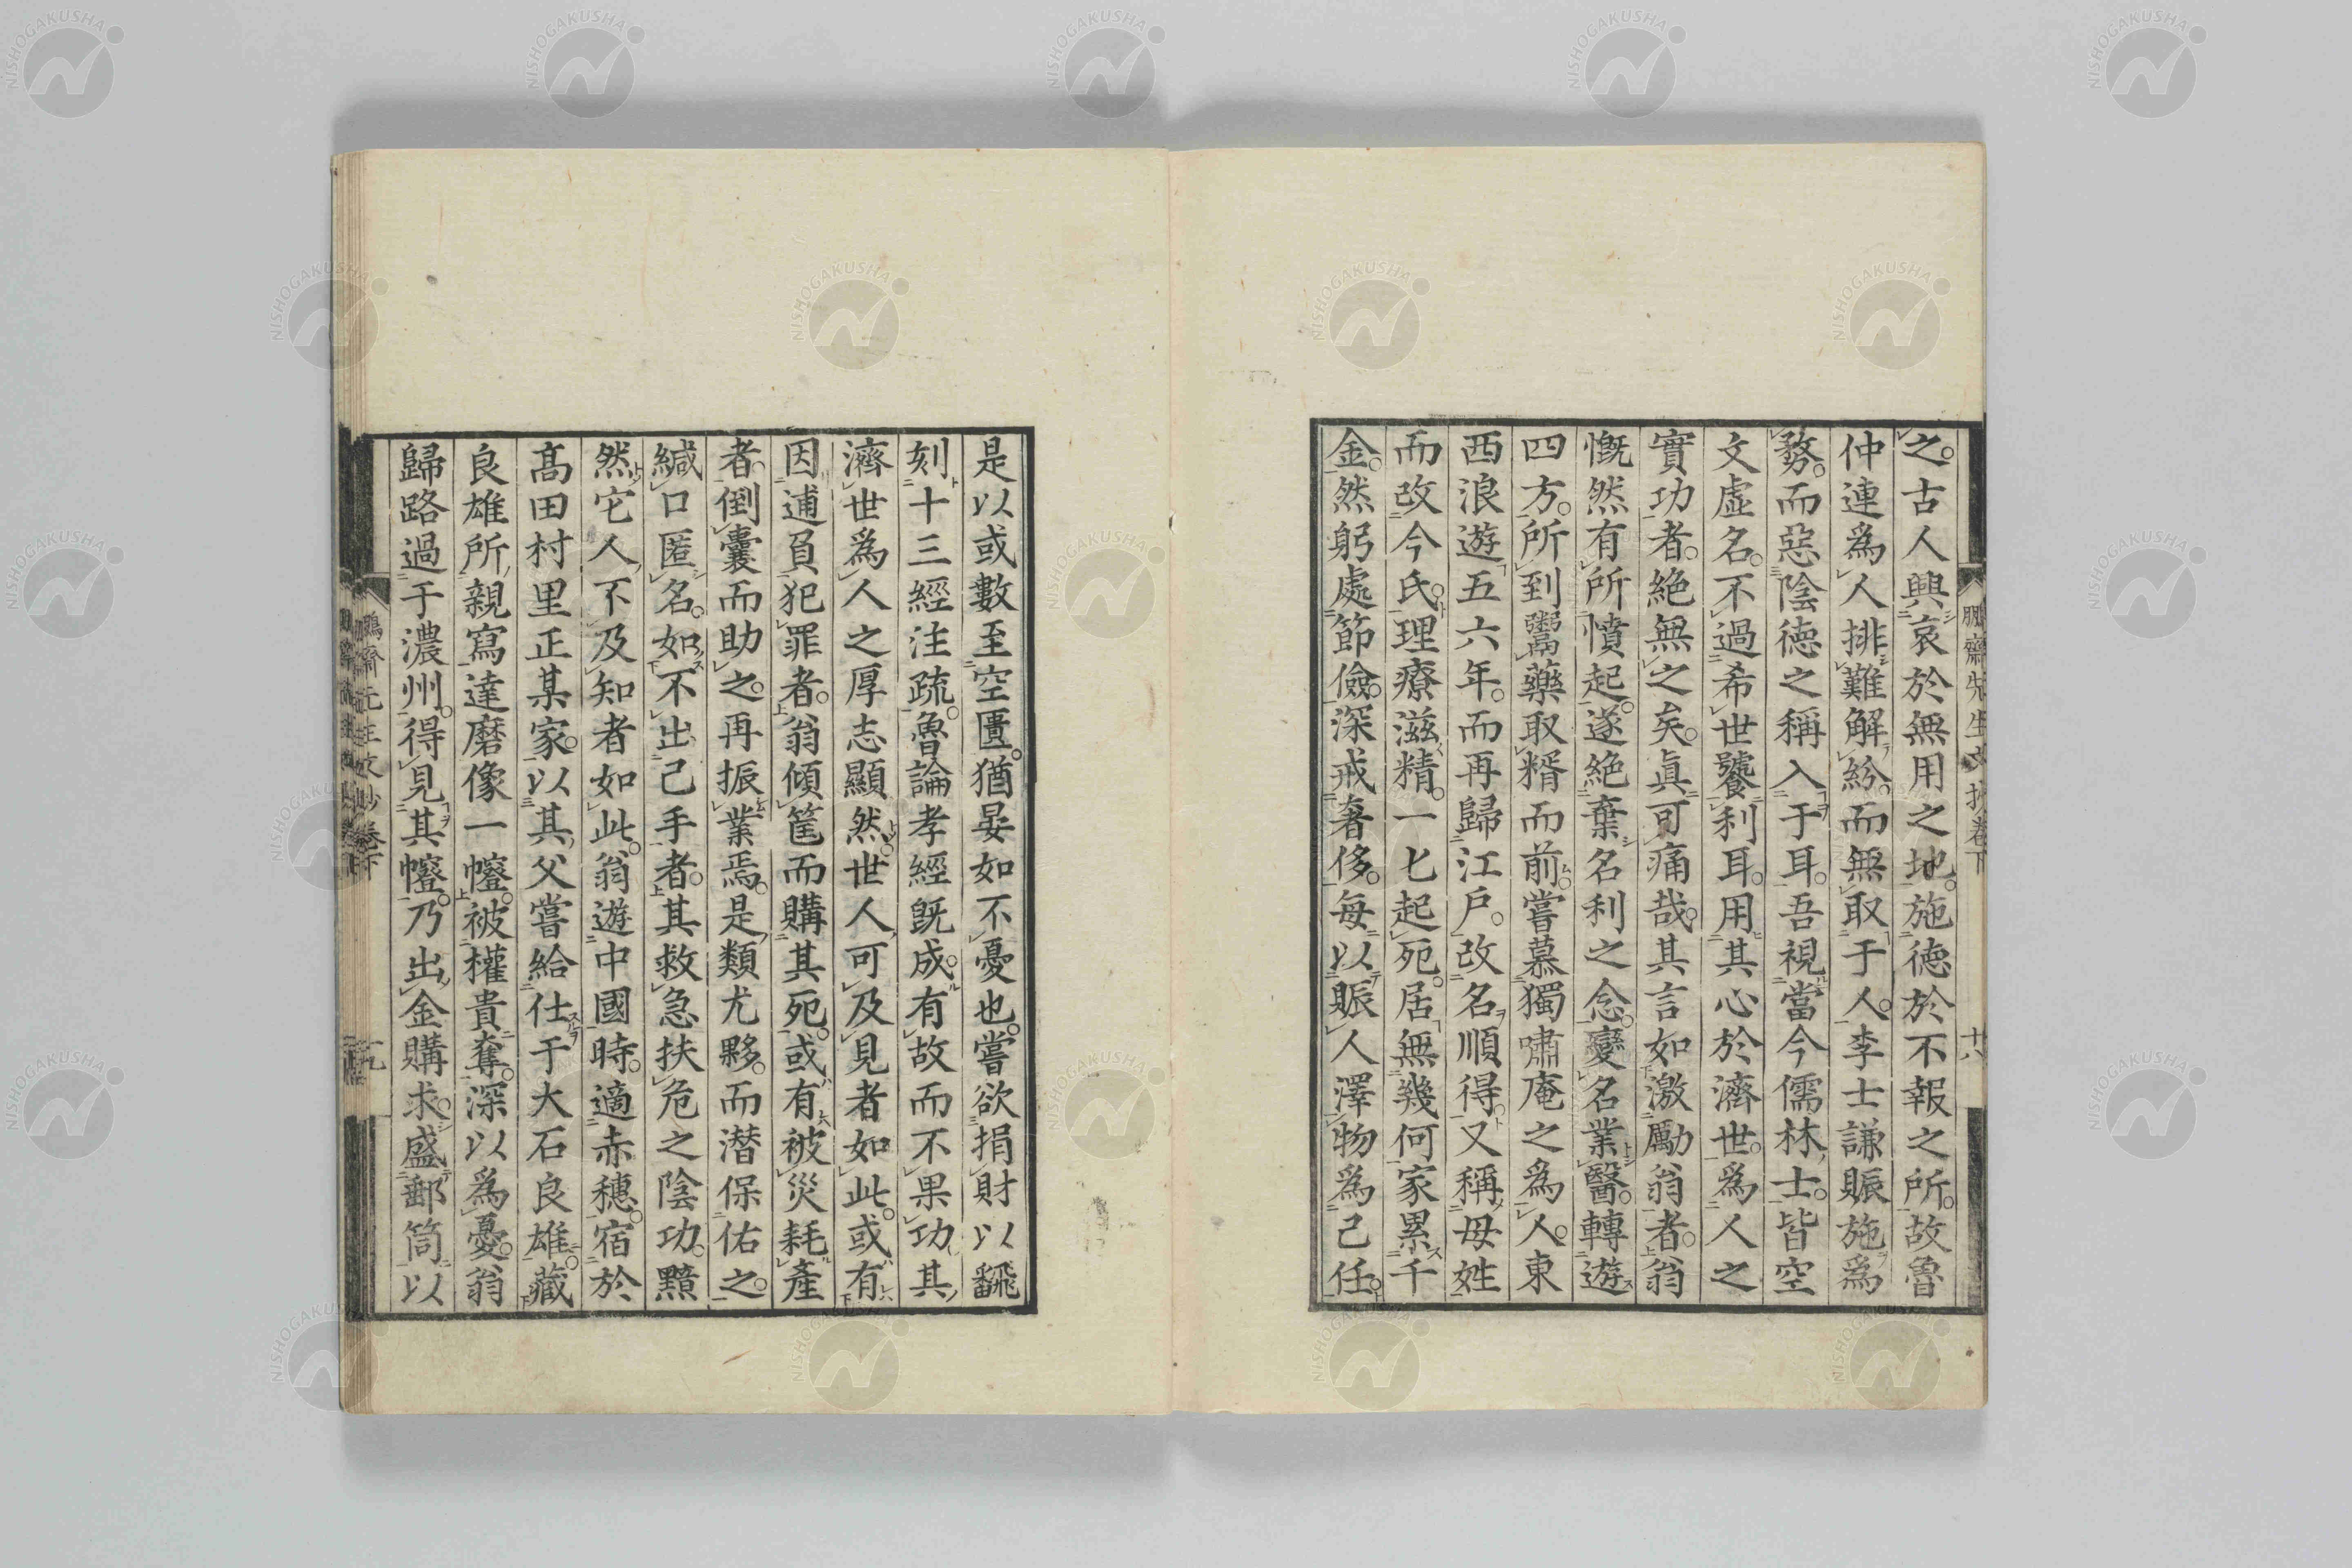 之。古人興哀於無用之地。施徳於不報之所。故魯
仲連爲人排難解紛。而無取于人。李士謙賑施爲
務。而惡陰徳之稱入于耳。吾視當今儒林士。皆空
文虚名。不過希世饕利耳。用其心於濟世。爲人之
實功者。絶無之矣。眞可痛哉。其言如激勵翁者。翁
慨然有所憤起。遂絶棄名利之念。變名業醫。轉遊
四方。所到鬻藥取糈而前。嘗慕獨嘯庵之爲人。東
西浪遊五六年。而再歸江戸。改名順得。又稱母姓
而改今氏。理療滋精。一匕起死。居無幾何家累千
金。然躬處節儉。深戒奢侈。毎以賑人澤物爲己任。
鵬齋先生文抄卷下
十八
是以或數至空匱。猶晏如不憂也。嘗欲捐財以飜
刻十三經注疏。魯論孝經既成。有故而不果功。其
濟世爲人之厚志顯然。世人可及見者如此。或有
因逋負犯罪者。翁傾筐而購其死。或有被災耗產
者。倒囊而助之。再振業焉。是類尤夥。而潜保佑之。
緘口匿名。如不出己手者。其救急扶危之陰功。黯
然它人不及知者如此。翁遊中國時。適赤穗。宿於
髙田村里正某家。以其父嘗給仕于大石良雄。藏
良雄所親寫達磨像一㡧。被權貴奪。深以爲憂。翁
歸路過于濃州。得見其㡧。乃出金購求。盛郵筒以
鵬齋先生文抄卷下